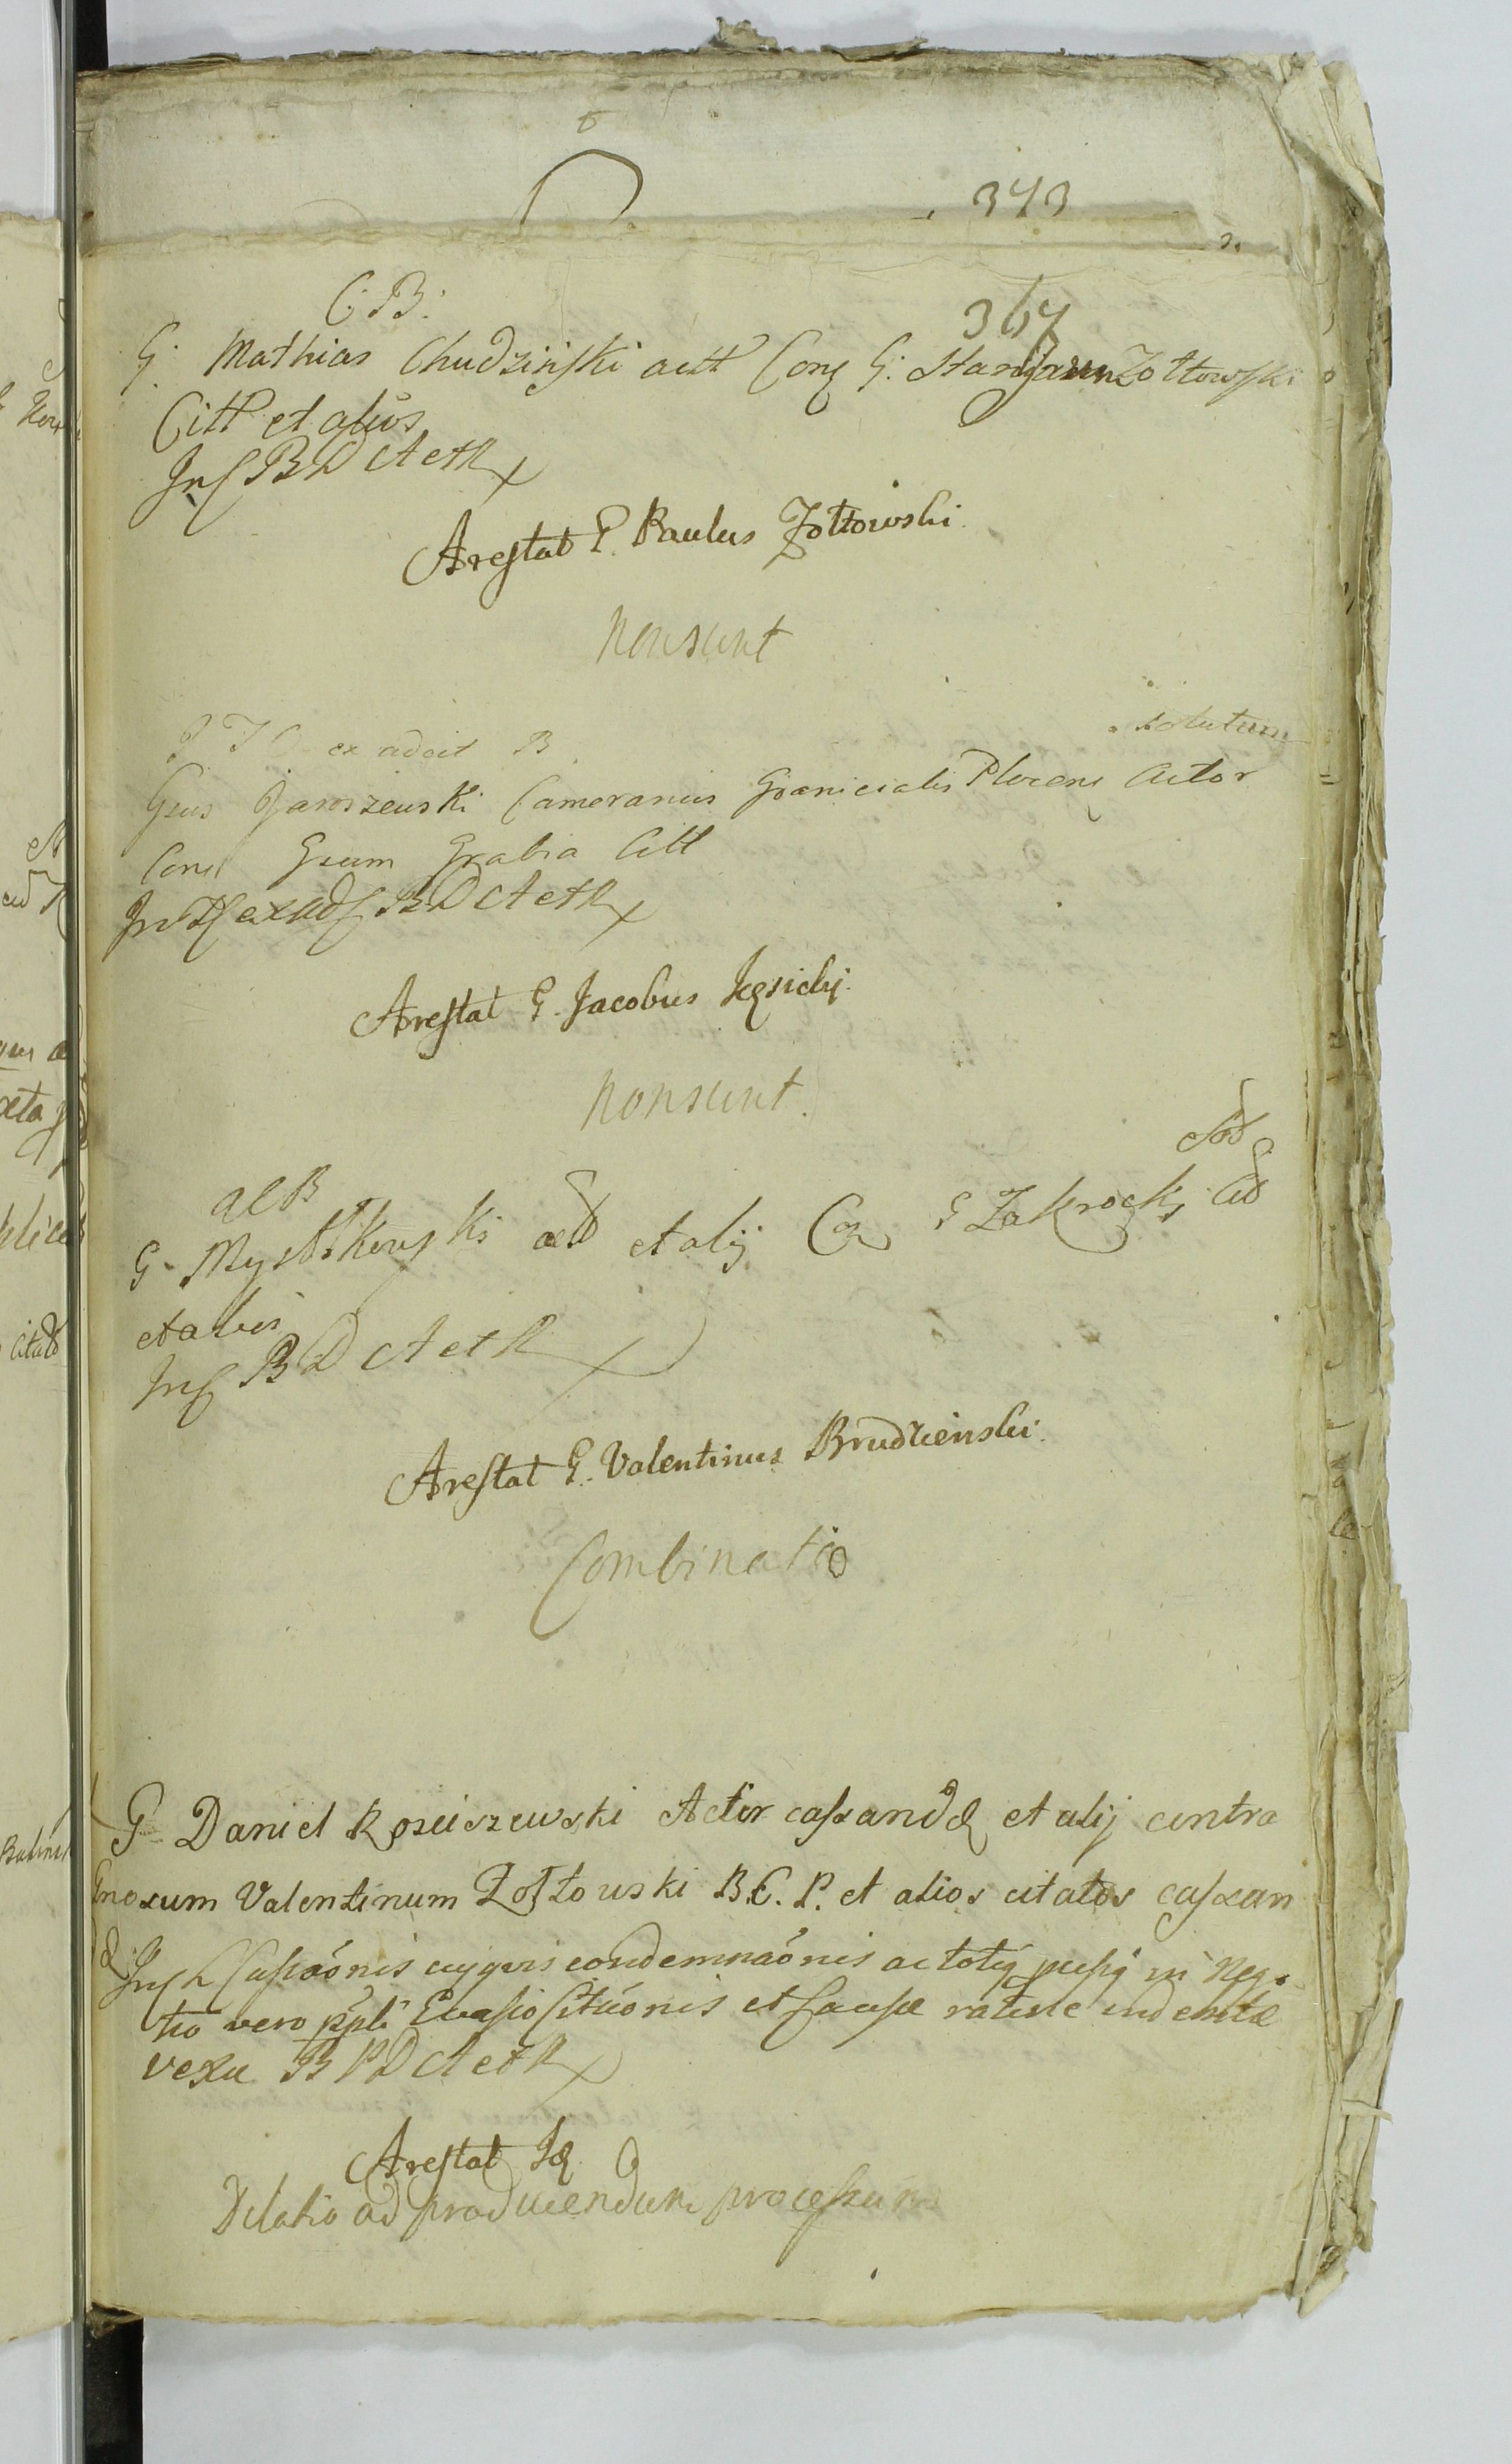 343
C: B:
367
G: Mathias Chudzińſki actt Con͠ G: Stanislaum Zołtowſki
Citt et alios
Inſ B D A et R
Areſtat G. Paulus Żołtowski.
Nonsunt
solutum
ex adcit B
Gsus Jaroszewski Camerarius Granicialis Plocens Actor
Con͠ Gsum Grabia Citt
B D A et R
Areſtat G. Jacobus
Nonsunt.
a C B
G. Mystkowski actt et alij Con͠ G Zakrocki Citt
et alios
Inſ B D A et R
Areſtat G. Valentinus Brudzienski.
Combinatio
G Daniel Rosciszewski Actor caſsandæ et alij contra
Gnosum Valentinum Zołtowski B. C. P. et alios citatos caſsan
dæ Inſ Caſsaõnis cujqvis condemnaõnis ac totiq in Nego
tio vero ppli Evasio Cituõnis et Cauſæ ratione indebitæ
vexæ B P D A et R
Areſtat Iđ
Dilatio ad producendum proceſsum